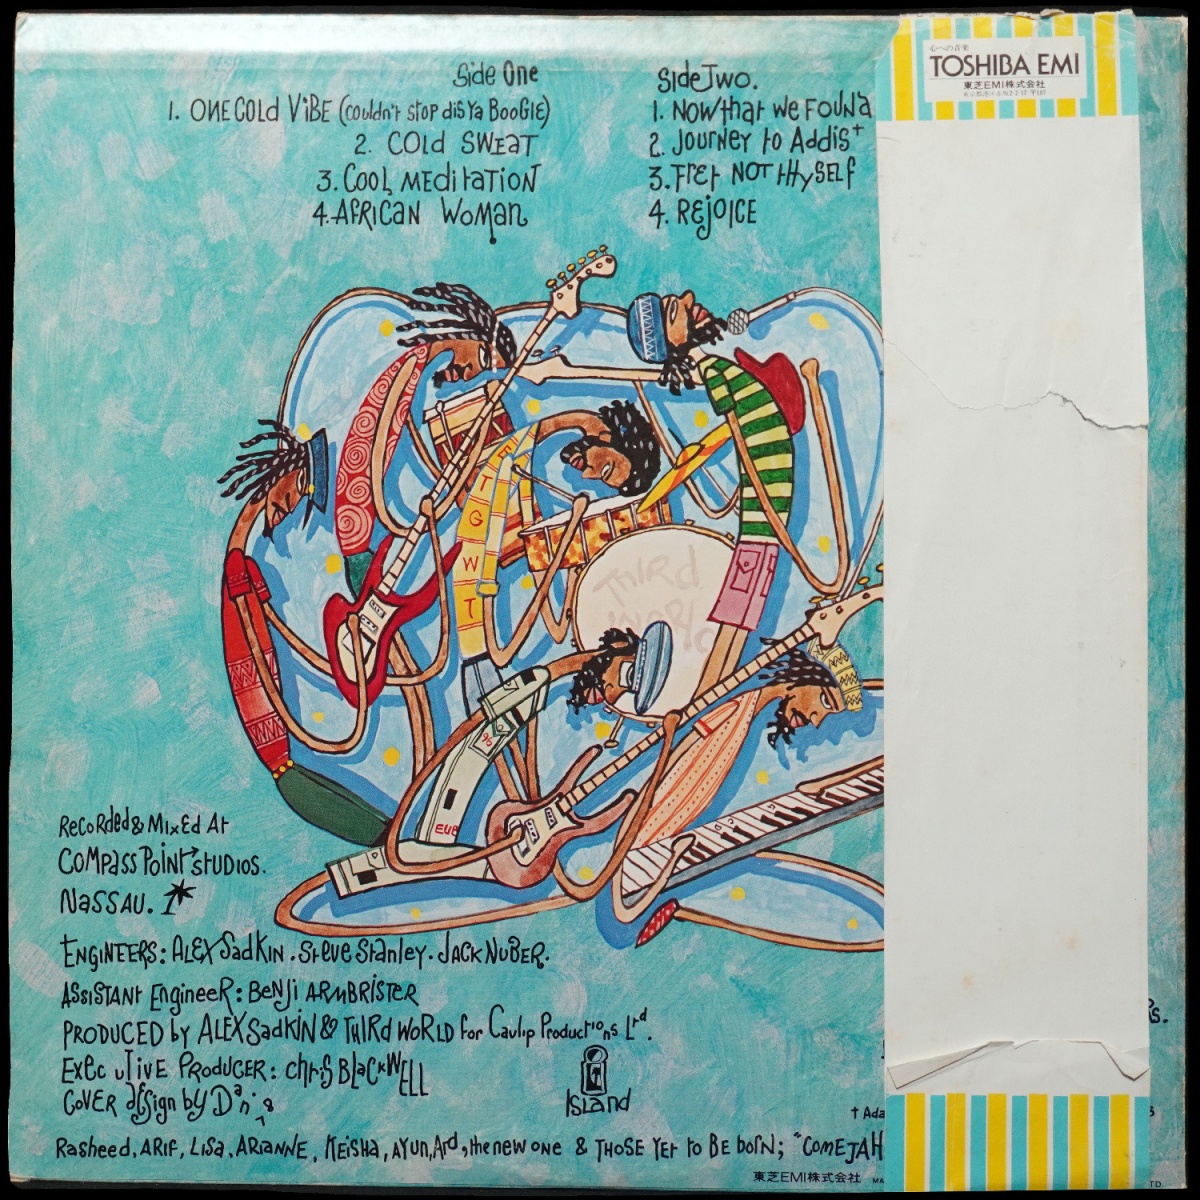 Side One
1. ONE COLD VIBE (couldn't stop dis ya BOOGIE)
2. COLD SWEAT
3. COOL MEDITATION
4. AFRICAN WOMAN
Side Two.
1. NOW that WE FOUND
2. JOURNEY to Addis†
3. Fret NOT tHySELF
4. REJOICE
心への音楽
TOSHIBA EMI
東芝EMI株式会社
E
T
G
W
T
THIRD
WORLD
96
EUB
RECORDED & MIXED At
COMPASS POINT STUDIOS.
NASSAU.
ENGINEERS: ALEX Sadkin . Steve Stanley . JACK NUBER.
ASSISTANT Engineer: BENJI ARMBRISTER
PRODUCED by ALEX SADKIN & THIRD WORLD for Cavlip Productions Ltd.
EXECUTIVE PRODUCER: CHRIS BLACKWELL
COVER design by Danig
ISLAND
† Ada
Rasheed, ARIF, LISA, ARIANNE, KEISHA, AYUN, Ard, the new one & THOSE YET to BE born; "COME JAH
東芝EMI株式会社 MA
TD.